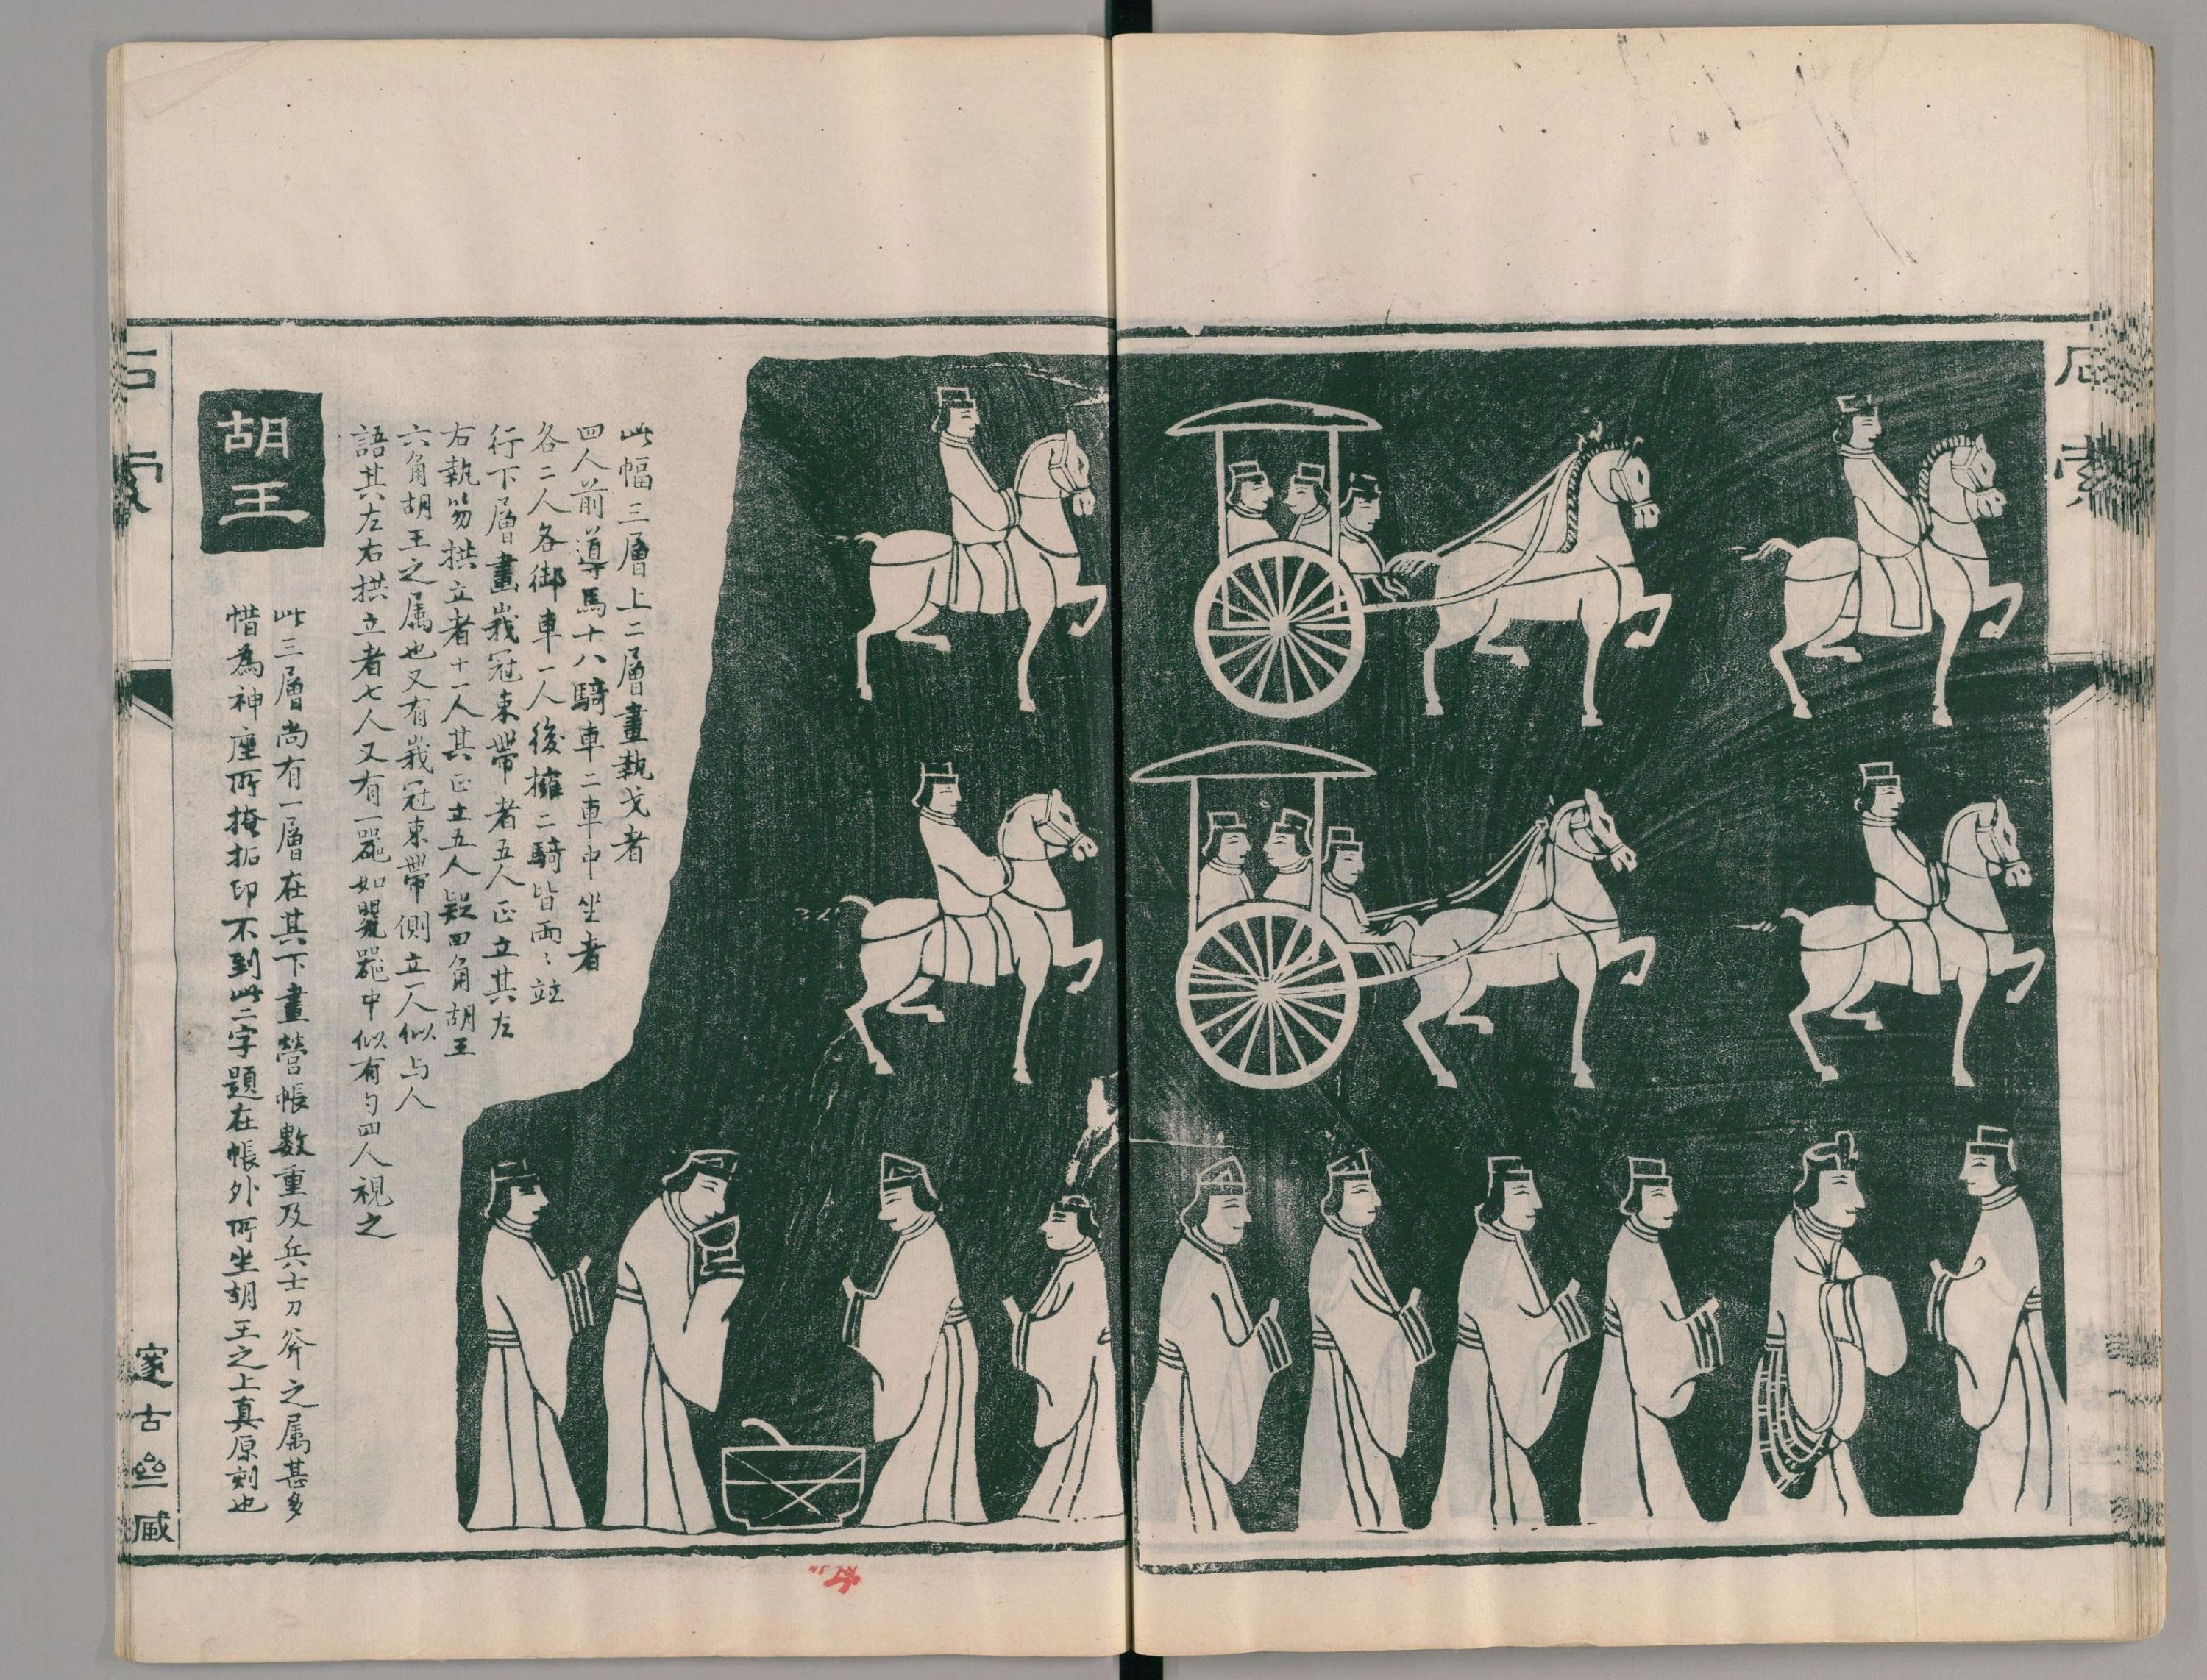 石索
此幅三層上二層畫執戈者
四人前導馬十八騎車二車中坐者
各二人各御車一人後擁二騎皆兩〻竝
行下層畫峩冠束帶者五人正立其左
右執笏拱立者十一人其正立五人疑四角胡王
六角胡王之属也又有峩冠束帶側立一人似与人
語其左右拱立者七人又有一器如甖器中似有勺四人視之
胡王
此三層尚有一層在其下畫營帳數重及兵士刀斧之属甚多
惜為神座所掩拓印不到此二字題在帳外所坐胡王之上真原刻也
石索
邃古亝臧